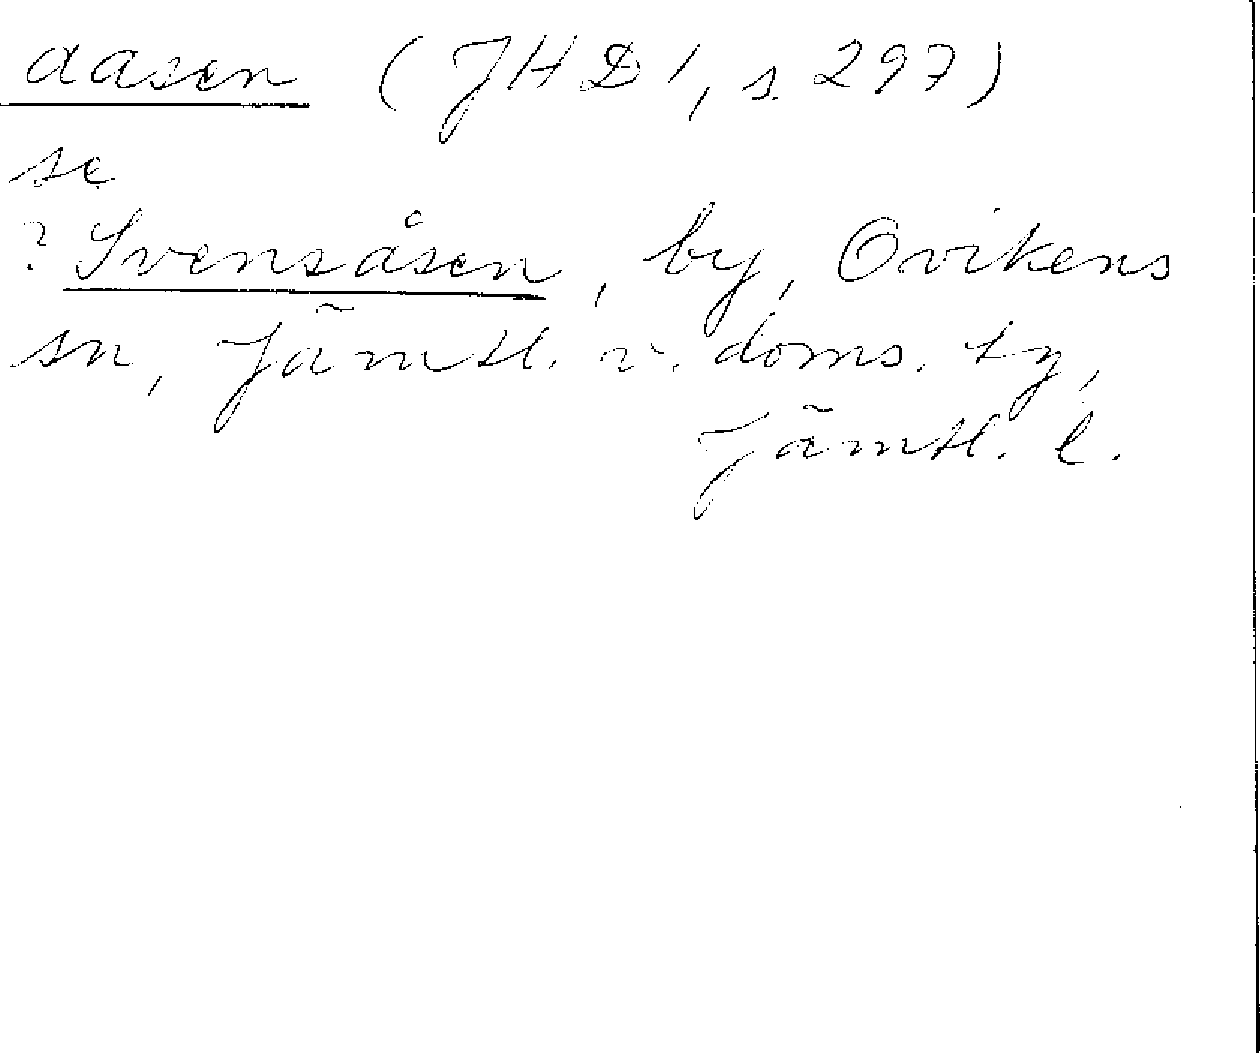 aasen (JHD 1, s. 297)
se
? Svensåsen, by, Ovikens
sn, Jämtl. v. doms. tg,
Jämtl. l.